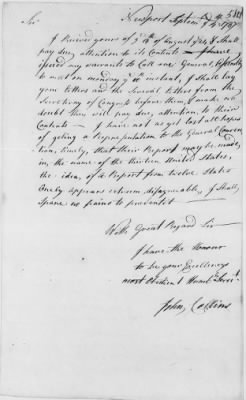 Newport Septem
Sir
I Received yours of of August I Shall
pay due attention to its Contents I have
issued my warrants to Call our General Assembly
to meet on monday instant, I Shall lay
your letters and the Several letters from the
Secretary of Congress before them, I make no
doubt they will pay due attention to their
Contents I have not as yet lost all hopes
of geting a Representation to the General Conven
tion, timely, that their Report may be made,
in the name of the thirteen United States,
the idea, of a Report from twelve States
Only appears extrem disagreable, I Shall,
Spare no pains to prevent it
With Great Regard Sir
I have the Honour
to be your Excellency
most Obedient Humbl Servt
John Collins